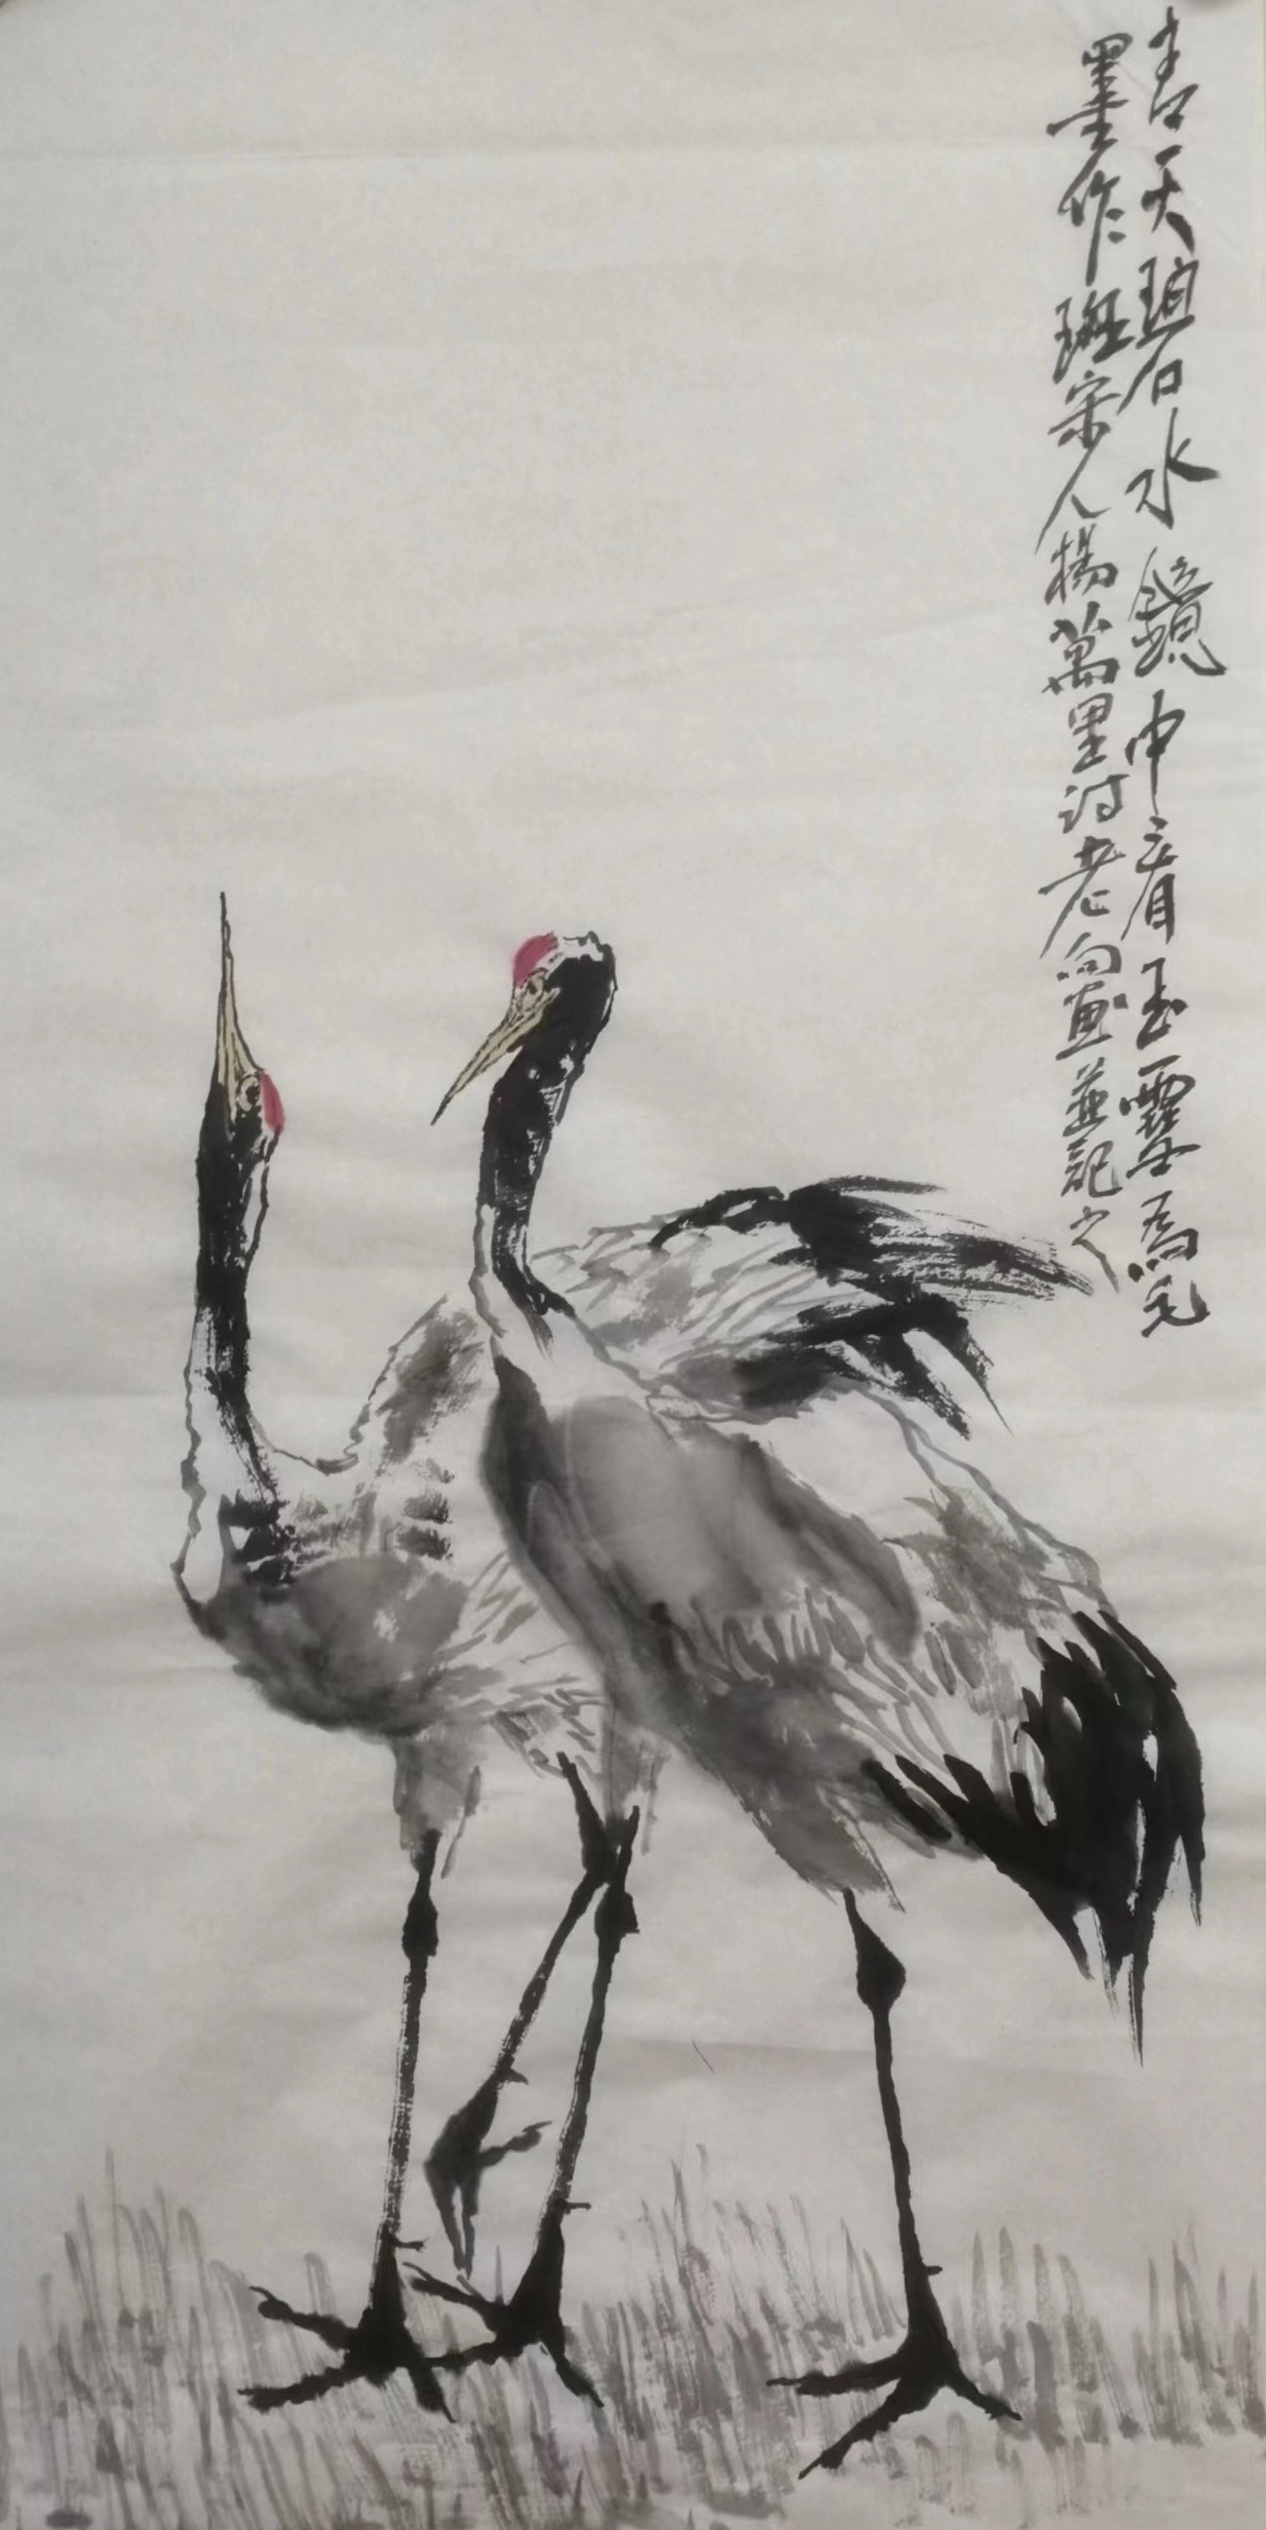 青天碧水鏡中看玉雪為毛
墨作斑宋人楊萬里詩老向畫並記之